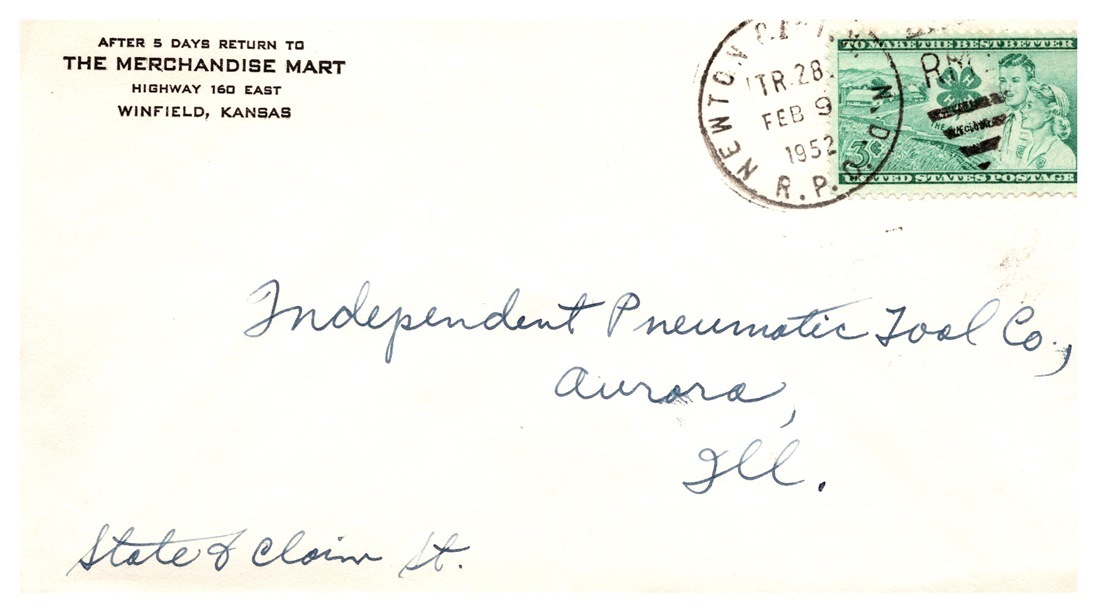 AFTER 5 DAYS RETURN TO
THE MERCHANDISE MART
HIGHWAY 160 EAST
WINFIELD, KANSAS
NEWTON
TR. 28
FEB 9
1952
R.P.O.
N.D.
TO MAKE THE BEST BETTER
H H
3¢
UNITED STATES POSTAGE
Independent Pneumatic Tool Co.,
Aurora,
Ill.
State & Claim St.